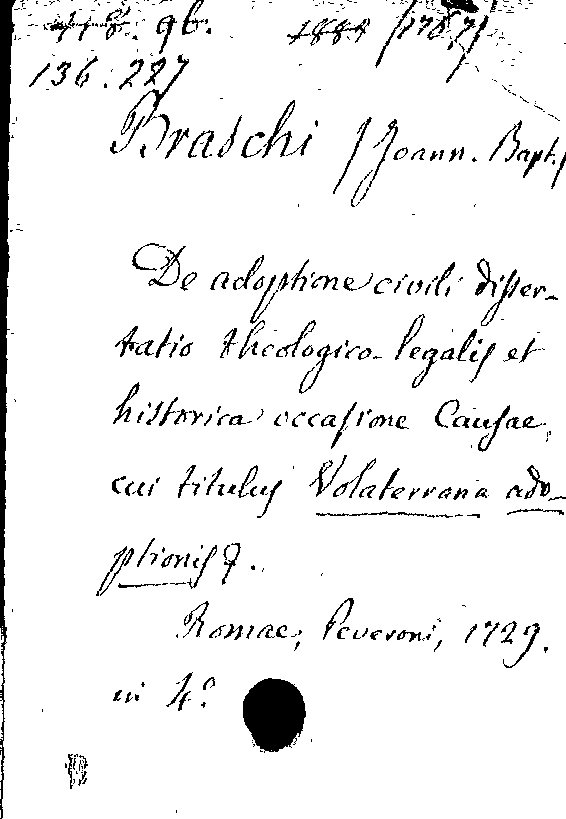 9b.
136.227
Braschi /Joann. Bapt./
De adoptione civili disser-
tatio theologico-legalis et
historica occasione Causae,
cui titulus Volaterrana ado-
ptionis
Romae, Peveroni, 1729.
in 4º